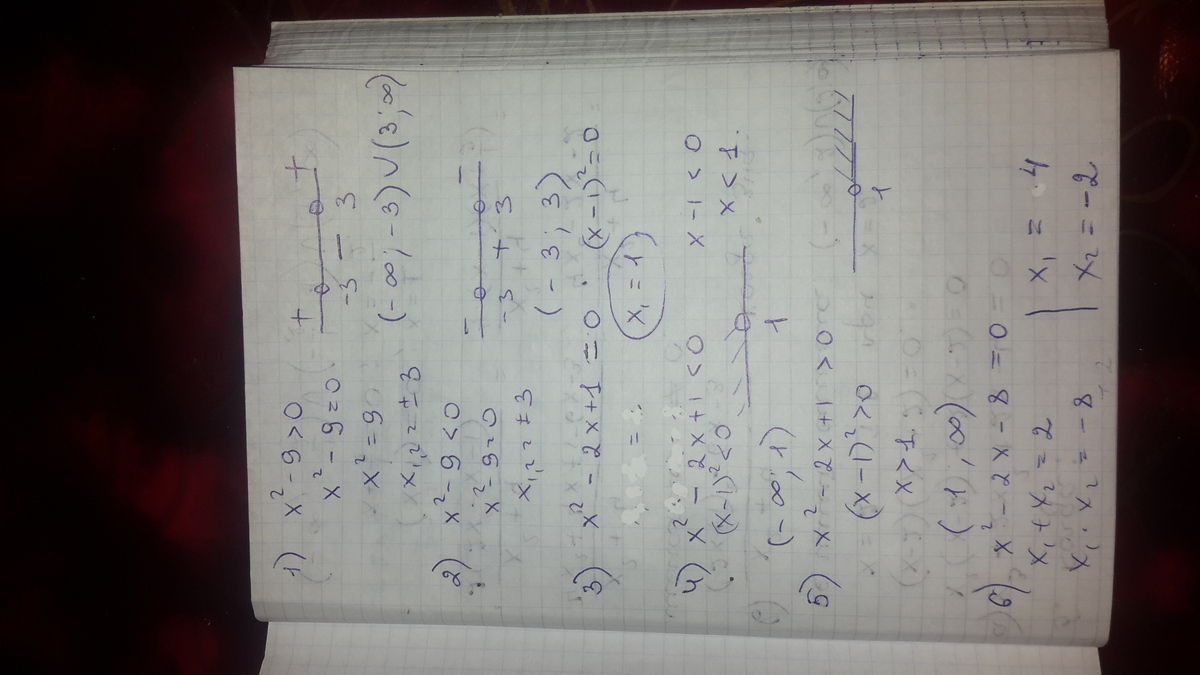 1) x² - 9 > 0
x² - 9 = 0
x² = 9
x₁,₂ = ± 3
+ +
-3 − 3
(-∞; -3) ∪ (3; ∞)
2) x² - 9 < 0
x² - 9 = 0
x₁,₂ = ± 3
− −
-3 + 3
(-3; 3)
3) x² - 2x + 1 = 0 (x - 1)² = 0
x₁ = 1
4) x² - 2x + 1 < 0 x - 1 < 0
(x - 1)² < 0 x < 1.
1
(-∞; 1)
5) x² - 2x + 1 > 0
(x - 1)² > 0
x > 1
1
(1, ∞)
6) x² - 2x - 8 = 0
x₁ + x₂ = 2 x₁ = 4
x₁ · x₂ = -8 x₂ = -2